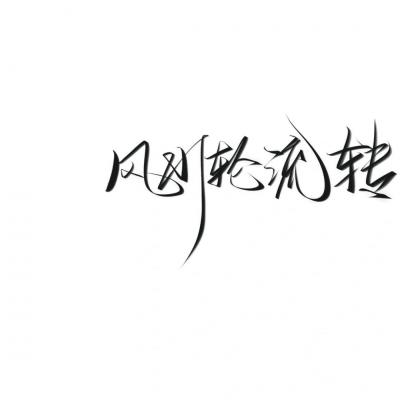 风轮流转